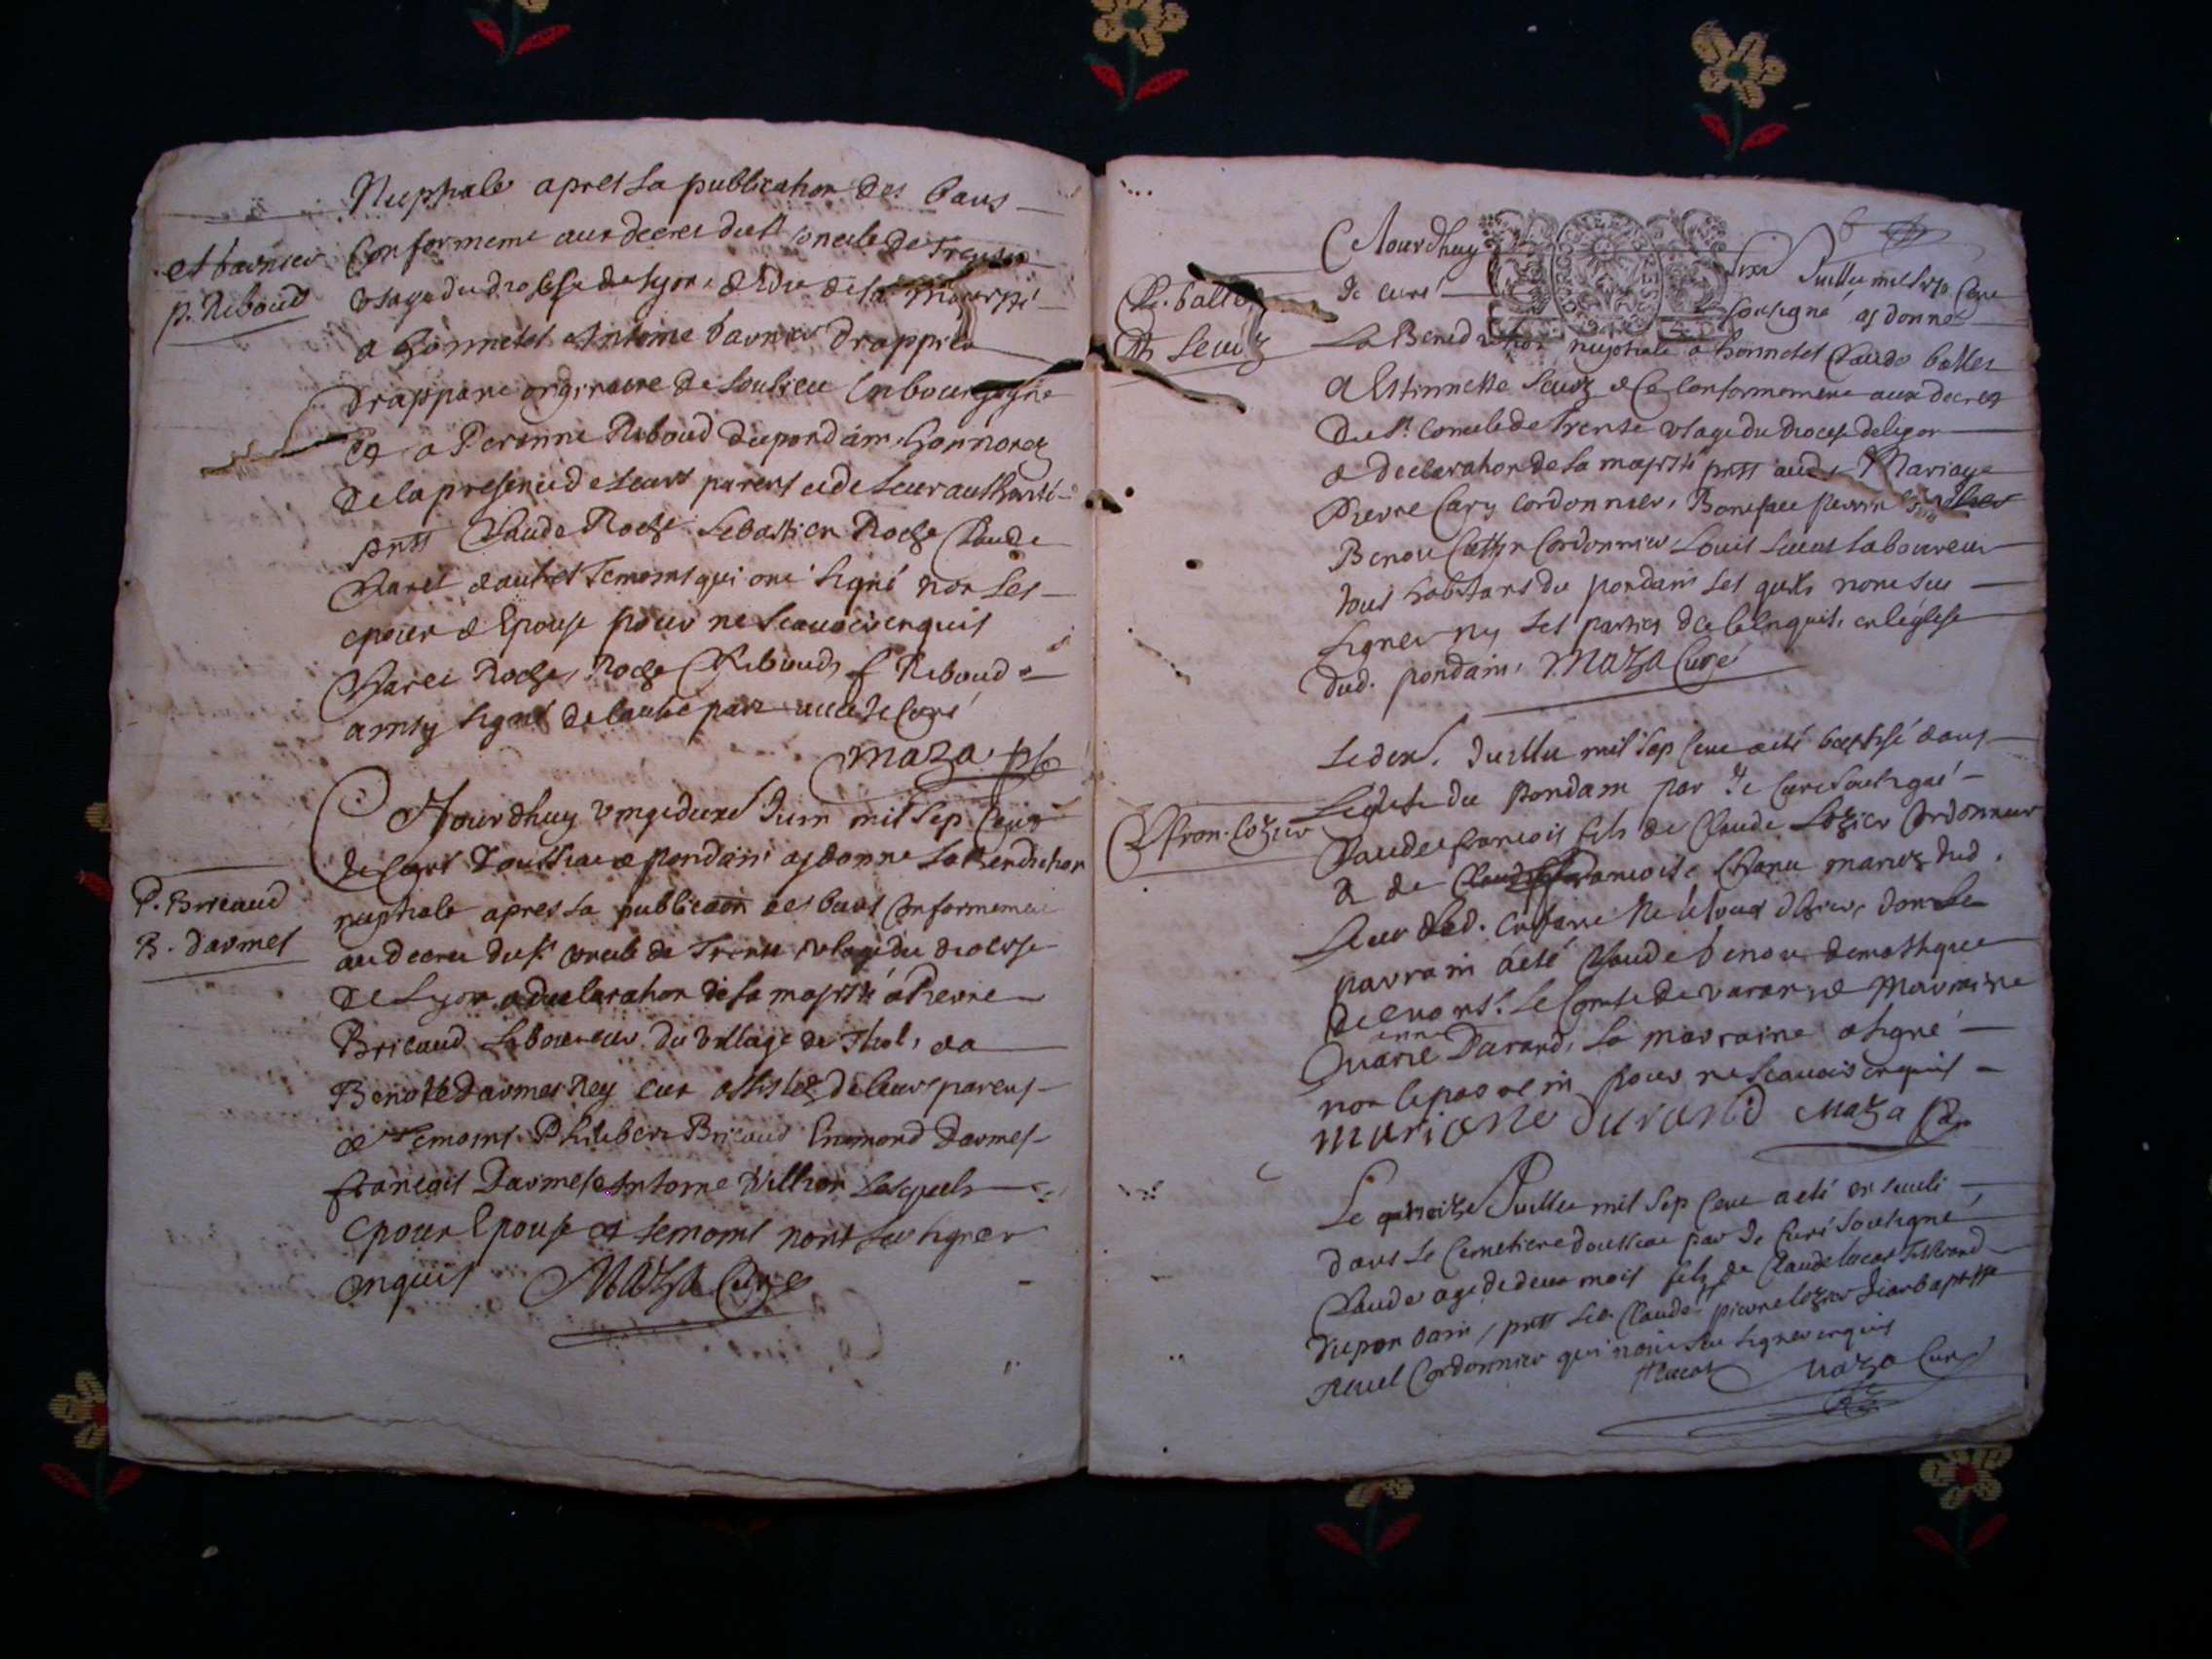 Nuptiale apres la publication des bans
At. varnier
p. Riboud
Conformemt aux decres du st concile de Trente
usage du diocese de Lyon &
a honnetes Antoine varnier drappier
drappant originaire de Saulieu en bourgogne
Et a Peronne Riboud du pondain honnorez
de la presence de leurs parens et de leur authorité
pnts Claude Roche Sebastien Roche Claude
Charet & autres temoins qui ont signé non les
epoux & Epouse pour ne scavoir enquis
Charet Roche, Roche Riboud, f Riboud
ainsy signes de lautre part avec Je Curé
Maza pb
P. Bricaud
B. darmes
Aiourdhuy vingt deux Juin mil Sep Cens
Je Curé doussiat & pondain ay donne la Benediction
nuptiale apres la publicaon des bans Conformement
au decret du st concile de Trente usage du diocese
de Lyon & declaration de sa majesté a Pierre
Bricaud Laboureur du village de Thol, & a
Benoite darmes Rey eux assistez de leurs parens
& temoins Philibert Bricaud Enemond Darmes
françois Darmes & Antoine Villion Lesquels
epoux Epouse & temoins nont seu signer
enquis Maza Curé
Cl. ballet
Et. Seuvz
Aiourdhuy six Juillet mil Sep Cens
Je curé soussigné ay donné
La Benediction nuptiale a honnetes Claude ballet
& Estiennette Seuvz & Ce Conformement aux decres
du St. concile de Trente usage du diocese de lyon
& declaration de sa majesté pnts aud. Mariage
Pierre Cary Cordonnier, Boniface perrin
Benoit Cattin Cordonnier Louis Seuvz Laboureur
tous habitans du pondain les quels nont seu
signer ny les parties de ce enquis, en léglise
dud. pondain, Maza Curé
Cl fran. Lozier
Le dix. Juillet mil Sep Cens a eté baptisé dans
Léglise du pondain par Je Curé soussigné
Claude francois fils de Claude Lozier Cordonnier
& de francoise Chanu mariez dud.
Lieu led. enfant né le jour dhier, dont le
parrain a eté Claude benoit domestique
de mons. Le Comte de varanne & Marraine
Marie anne Durand, la marraine a signé
non le parrain pour ne scavoir enquis
mariane durand Maza pb
Le quinoize Juillet mil Sep Cens a eté enseveli
dans le Cemetiere doussiat par Je Curé soussigné
Claude agé de deux mois fils de Claude lucas Tisserand
du pondain, pnts led. Claude, pierre lozier Jean baptiste
revel Cordonnier qui nont seu signer enquis
Maza Curé